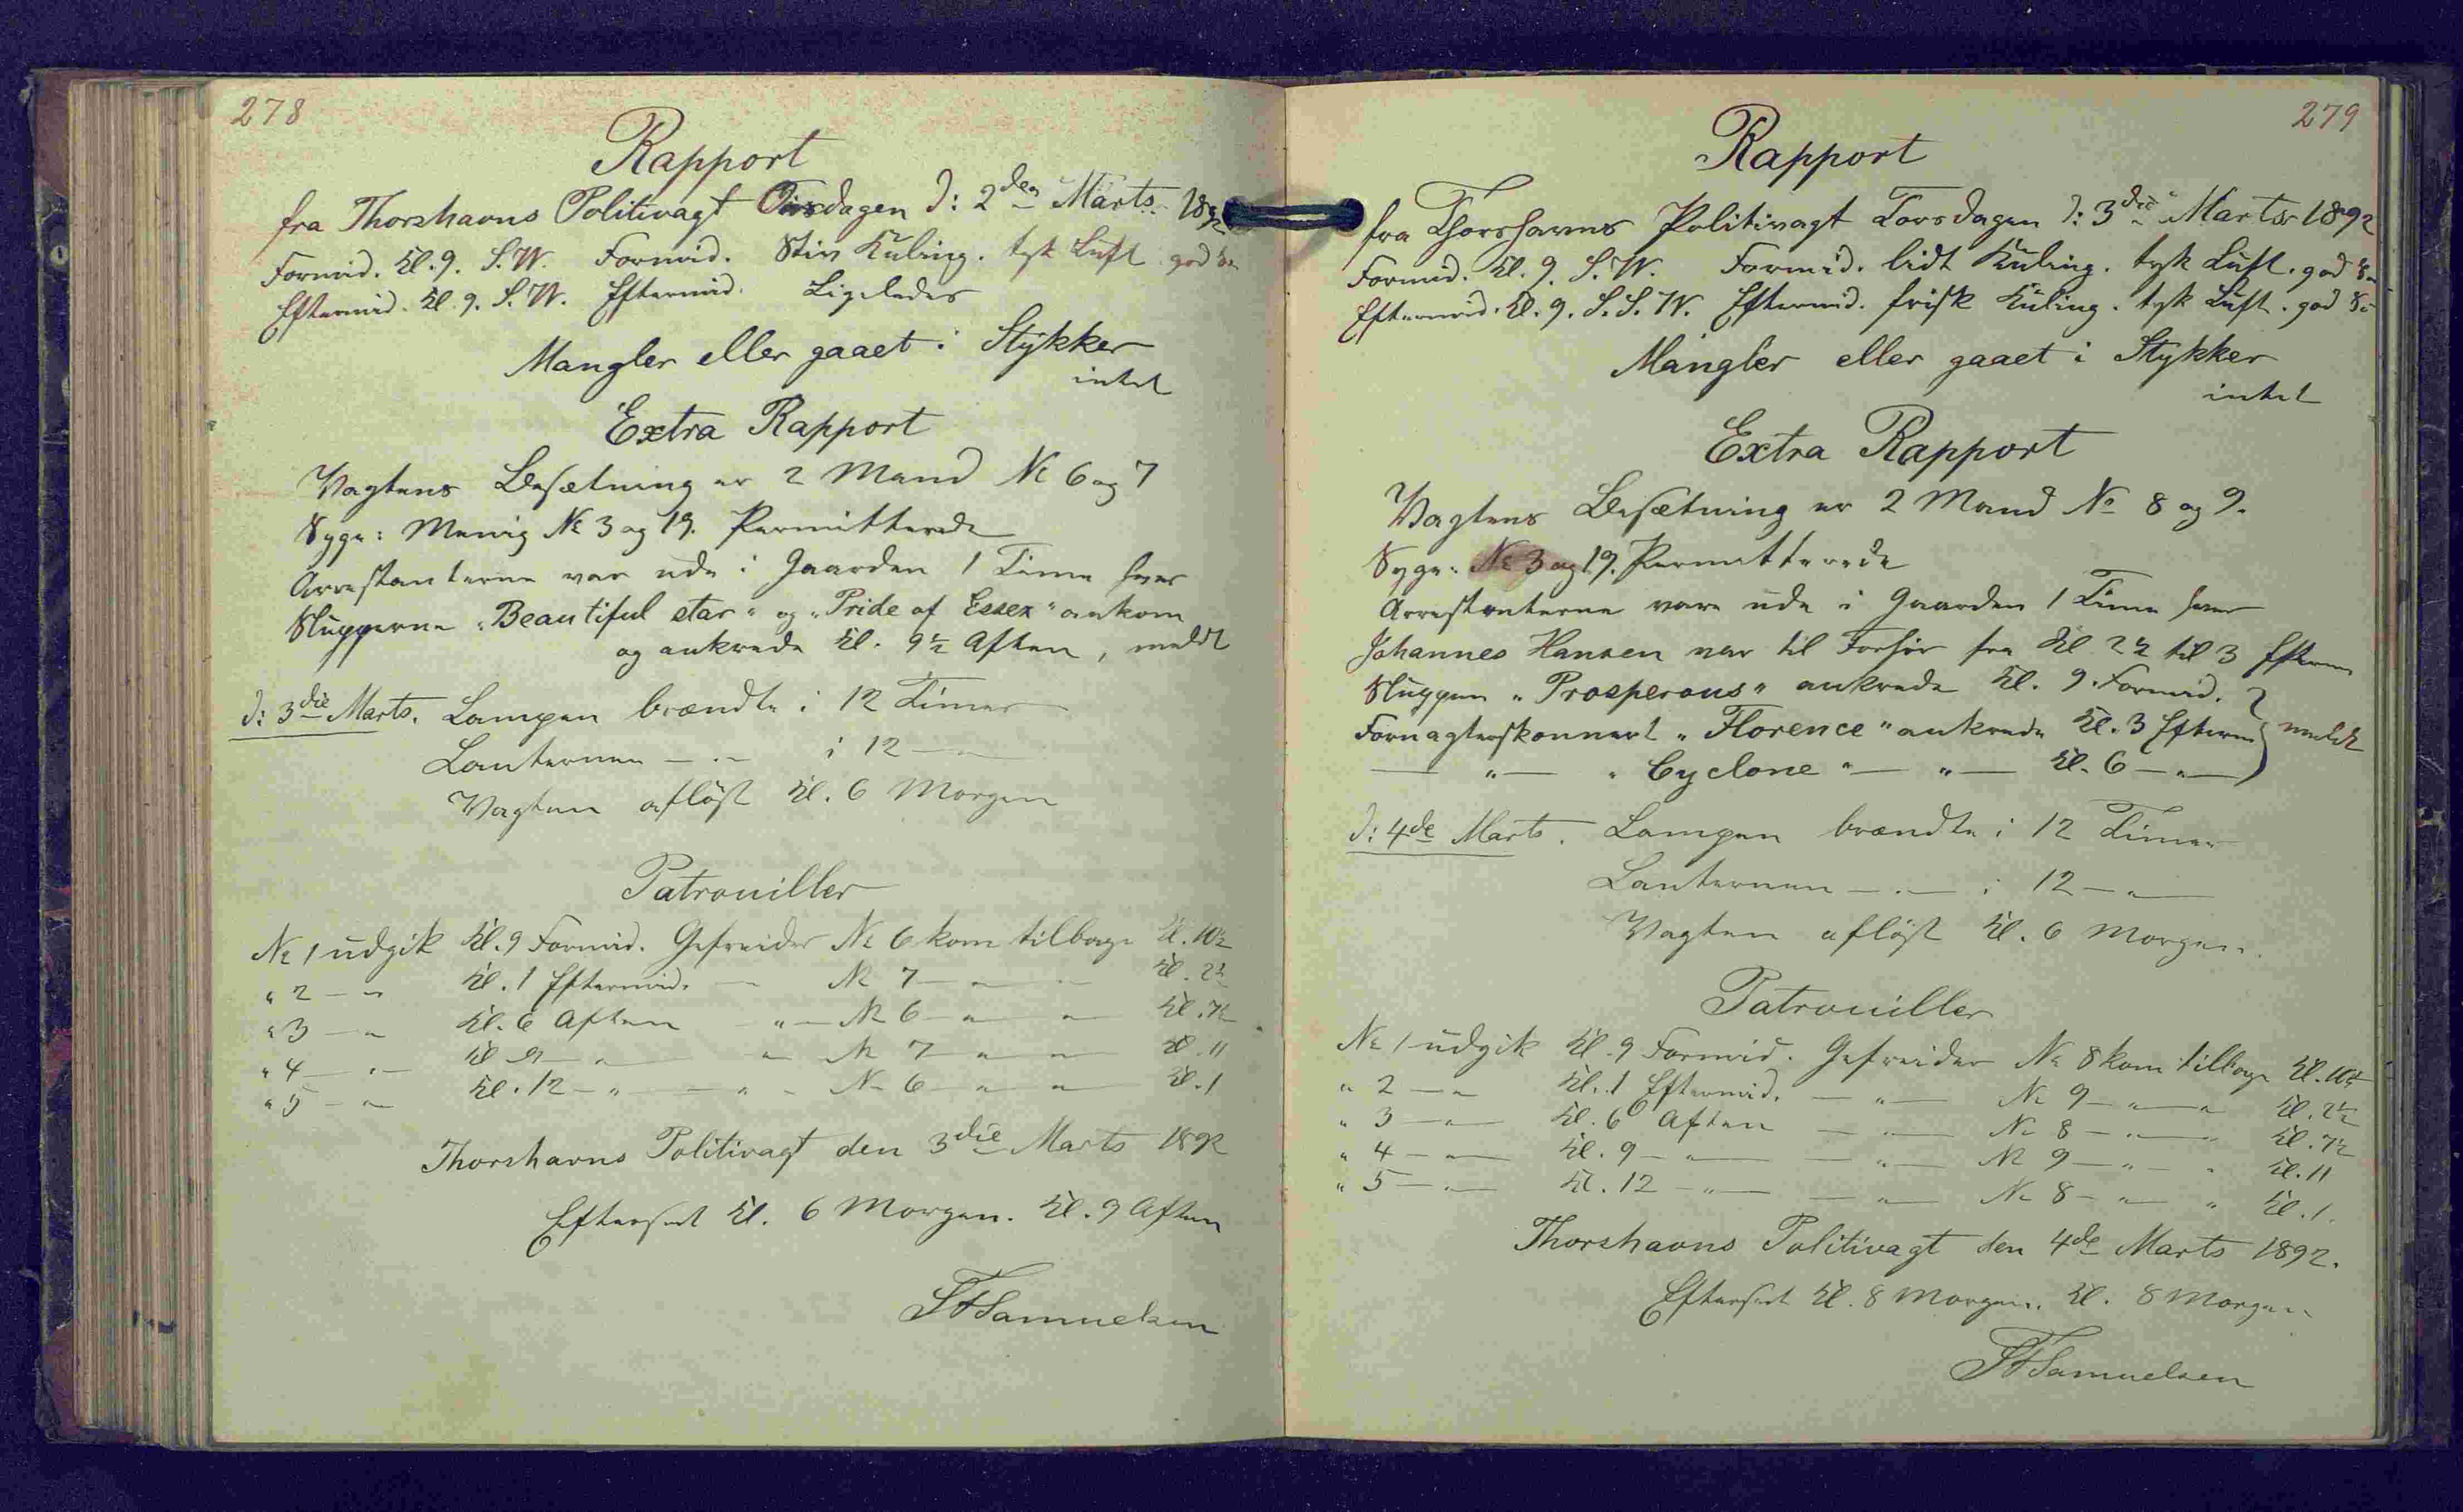 278
Rapport
fra Thorshavns Politivagt Onsdagen d: 2den Marts 1892
Formid. Kl. 9. S.W. Formid. Stiv Kuling. tyk Luft. god
Eftermid. Kl. 9. S.W. Eftermid. Ligeledes
Mangler eller gaaet i Stykker
intet
Extra Rapport
Vagtens Besætning er 2 Mand No 6 og 7
Syge: Menig No 3 og 19. Permitterede
Arrestanterne var ude i Gaarden 1 Time hver
Slupperne "Beautiful star" og "Pride of Essex" ankom
og ankrede Kl. 9½ Aften, meldt
d: 3die Marts. Lampen brændte i 12 Timer
Lanternen — „ — i 12 — „ —
Vagten afløst Kl. 6 Morgen
Patrouiller
No 1 udgik Kl. 9 Formid. Gefreider No 6 kom tilbage Kl. 10½
„ 2 — „ Kl. 1 Eftermid. — „ No 7 — „ — „ — Kl. 2½
„ 3 — „ Kl. 6 Aften — „ — No 6 — „ — „ — Kl. 7½
„ 4 — „ — Kl. 9 — „ — „ — No 7 — „ — „ — Kl. 11
„ 5 — „ — Kl. 12 — „ — — „ — No 6 — „ — „ — Kl. 1
Thorshavns Politivagt den 3die Marts 1892
Efterset Kl. 6 Morgen. Kl. 9 Aften
Samuelsen
279
Rapport
fra Thorshavns Politivagt Torsdagen d: 3die Marts 1892
Formid. Kl. 9. S.W. Formid. lidt Kuling. tyk Luft. god
Eftermid. Kl. 9. S.S.W. Eftermid. frisk Kuling. tyk Luft. god
Mangler eller gaaet i Stykker
intet
Extra Rapport
Vagtens Besætning er 2 Mand No 8 og 9.
Syge: No 3 og 19. Permitterede
Arrestanterne vare ude i Gaarden 1 Time hver
Johannes Hansen var til Forhør fra Kl. 2½ til 3 Efterm
Sluppen "Prosperous" ankrede Kl. 9. Formid.
Fornagterskonnert "Florence" ankrede Kl. 3 Efterm } meldt
— „ — "Cyclone" — „ — Kl. 6 — „ —
d: 4de Marts. Lampen brændte i 12 Timer
Lanternen — „ — i 12 — „ —
Vagten afløst Kl. 6 Morgen.
Patrouiller
No 1 udgik Kl. 9 Formid. Gefreider No 8 kom tilbage Kl. 10½
„ 2 — „ Kl. 1 Eftermid. — „ — No 9 — „ — „ Kl. 2½
„ 3 — „ — Kl. 6 Aften — „ — No 8 — „ — „ Kl. 7½
„ 4 — „ — Kl. 9 — „ — — „ — No 9 — „ — „ Kl. 11
„ 5 — „ — Kl. 12 — „ — — „ — No 8 — „ — „ Kl. 1.
Thorshavns Politivagt den 4de Marts 1892.
Efterset Kl. 8 Morgen. Kl. 8 Morgen
Samuelsen